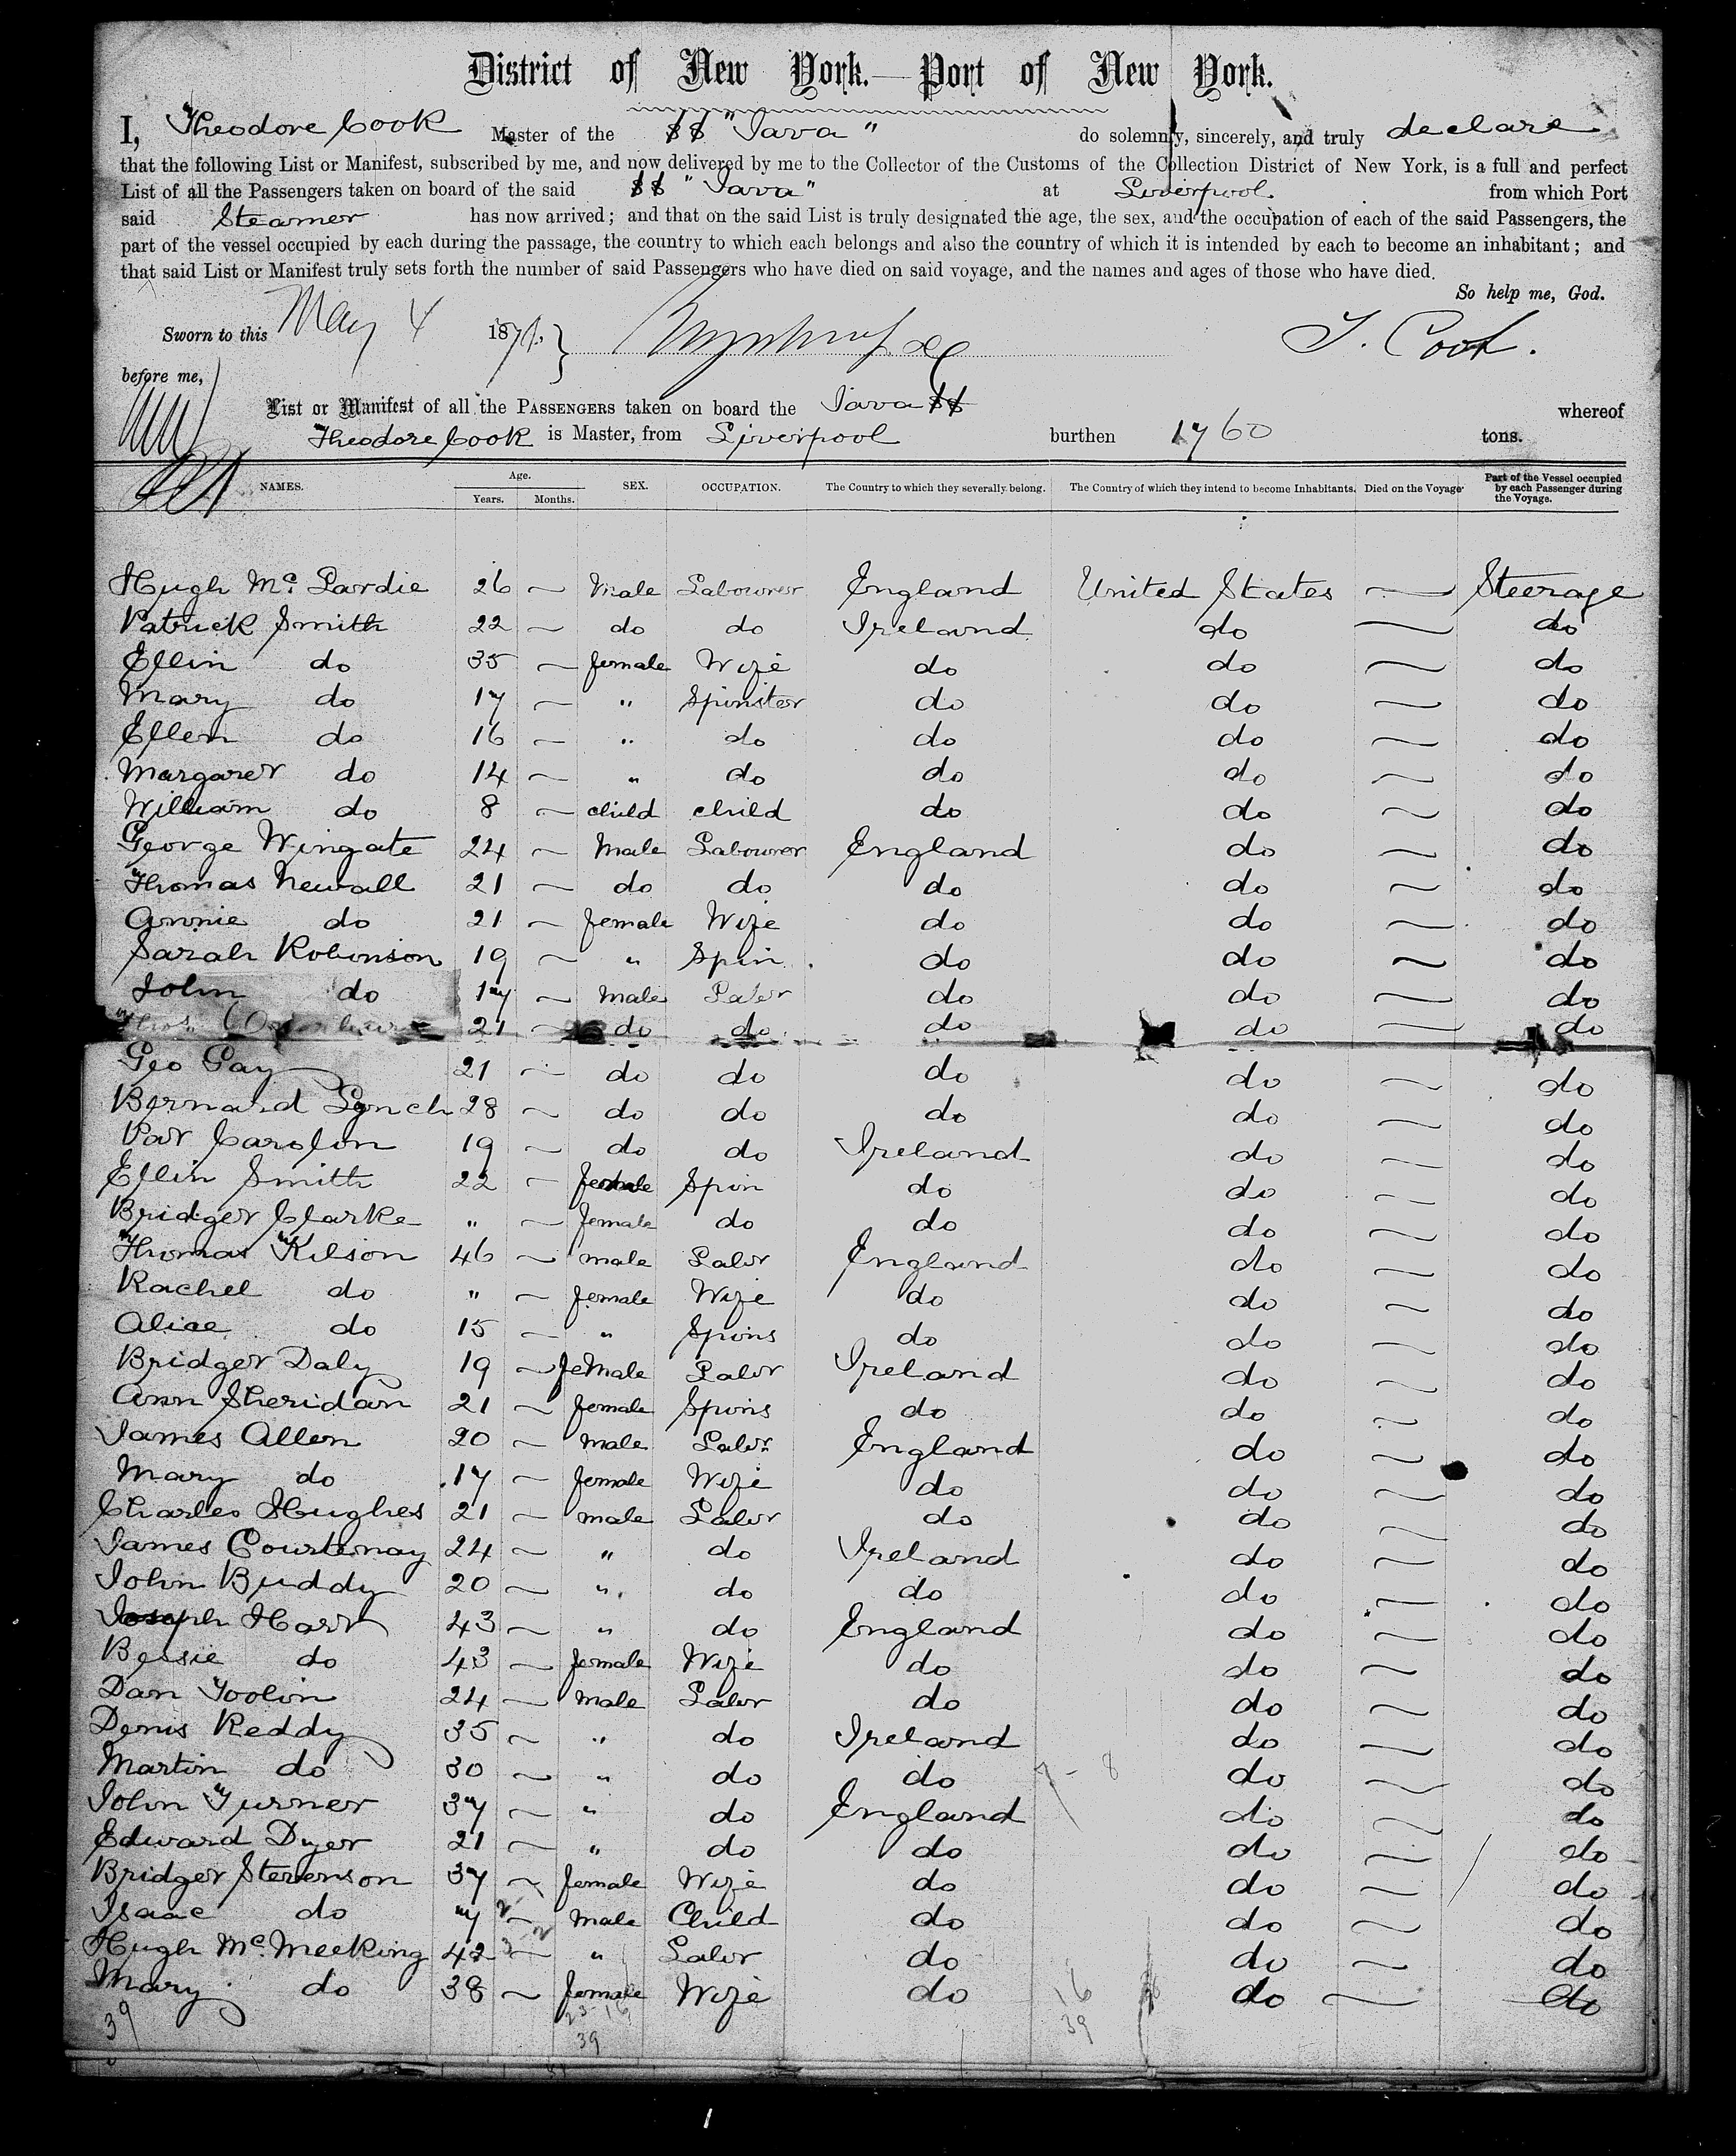 District of New York.—Port of New York.
I, Theodore Cook Master of the SS "Java" do solemnly, sincerely, and truly declare
that the following List or Manifest, subscribed by me, and now delivered by me to the Collector of the Customs of the Collection District of New York, is a full and perfect
List of all the Passengers taken on board of the said SS "Java" at Liverpool. from which Port
said Steamer has now arrived; and that on the said List is truly designated the age, the sex, and the occupation of each of the said Passengers, the
part of the vessel occupied by each during the passage, the country to which each belongs and also the country of which it is intended by each to become an inhabitant; and
that said List or Manifest truly sets forth the number of said Passengers who have died on said voyage, and the names and ages of those who have died.
So help me, God.
Sworn to this May 4 187 T. Cook.
before me,
List or Manifest of all the PASSENGERS taken on board the Java SS whereof
Theodore Cook is Master, from Liverpool burthen 1760 tons.
NAMES. Age. Years. Months. SEX. OCCUPATION. The Country to which they severally belong. The Country of which they intend to become Inhabitants. Died on the Voyage Part of the Vessel occupied by each Passenger during the Voyage.
Hugh Mc. Lardie 26 — Male Labourer England United States — Steerage
Patrick Smith 22 — do do Ireland do — do
Ellin do 35 — female Wife do do — do
Mary do 17 — " Spinster do do — do
Ellen do 16 — " do do do — do
Margaret do 14 — " do do do — do
William do 8 — child child do do — do
George Wingate 24 — Male Labourer England do — do
Thomas Newall 21 — do do do do — do
Annie do 21 — female Wife do do — do
Sarah Robinson 19 — " Spin do do — do
John do 17 — Male Labr do do — do
Thos. 21 — do do do do — do
Geo Gay 21 — do do do do — do
Bernard Lynch 28 — do do do do — do
Pat Carolin 19 — do do Ireland do — do
Ellin Smith 22 — female Spin do do — do
Bridget Clarke " — female do do do — do
Thomas Kilson 46 — male Labr England do — do
Rachel do " — female Wife do do — do
Alice do 15 — " Spins do do — do
Bridget Daly 19 — feMale Labr Ireland do — do
Ann Sheridan 21 — female Spins do do — do
James Allen 20 — Male Labr England do — do
Mary do 17 — female Wife do do — do
Charles Hughes 21 — male Labr do do — do
James Courtenay 24 — " do Ireland do — do
John Buddy 20 — " do do do — do
Joseph Hart 43 — " do England do — do
Betsie do 43 — female Wife do do — do
Dan Toolin 24 — male Labr do do — do
Denis Reddy 35 — " do Ireland do — do
Martin do 30 — " do do do — do
John Turner 37 — " do England do — do
Edward Dyer 21 — " do do do — do
Bridget Stevenson 37 — female Wife do do — do
Isaac do 7 — Male Child do do — do
Hugh Mc. Meeking 42 — " Labr do do — do
Mary do 38 — female Wife do do — do
39 23-16 16
39 39